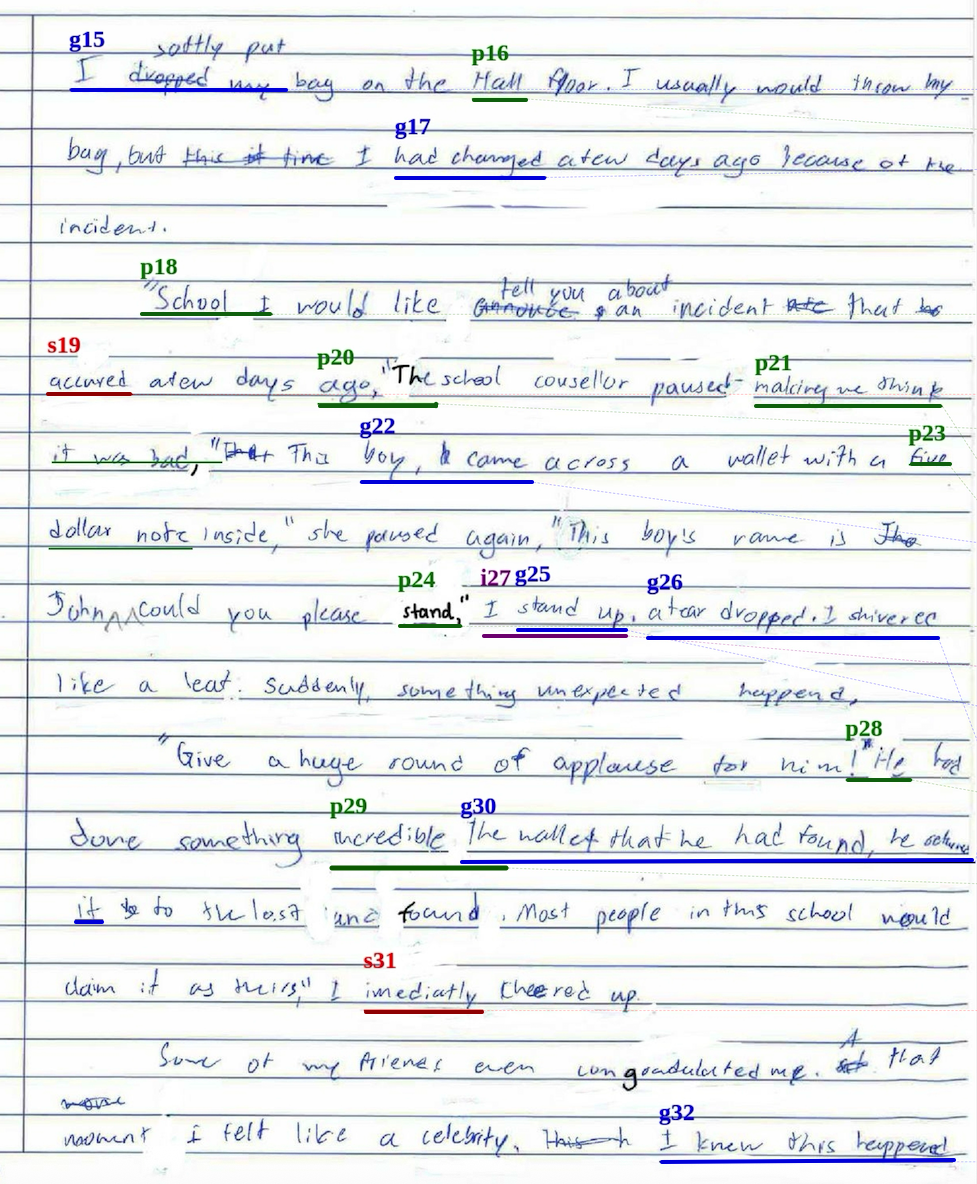 g15 softly put p16
I dropped my bag on the Hall floor. I usually would throw my
g17
bag, but this it time I had changed afew days ago because of the
incident.
p18
"School I would like announce tell you about an incident that
s19 p20 p21
accured afew days ago," The school cousellor paused- making me think
g22 p23
it was bad, "That This boy, came across a wallet with a five
dollar note inside," she paused again, "This boy's name is The
p24 i27 g25 g26
John could you please stand," I stand up. a tear dropped. I shivered
like a leaf. Suddenly, something unexpected happend,
p28
"Give a huge round of applause for him!" He had
p29 g30
done something incredible The wallet that he had found, he returned
it to the lost and found. Most people in this school would
s31
claim it as theirs," I imediatly cheered up.
Some of my friends even congradulated me. At that
g32
moment I felt like a celebrity. This I knew this happend